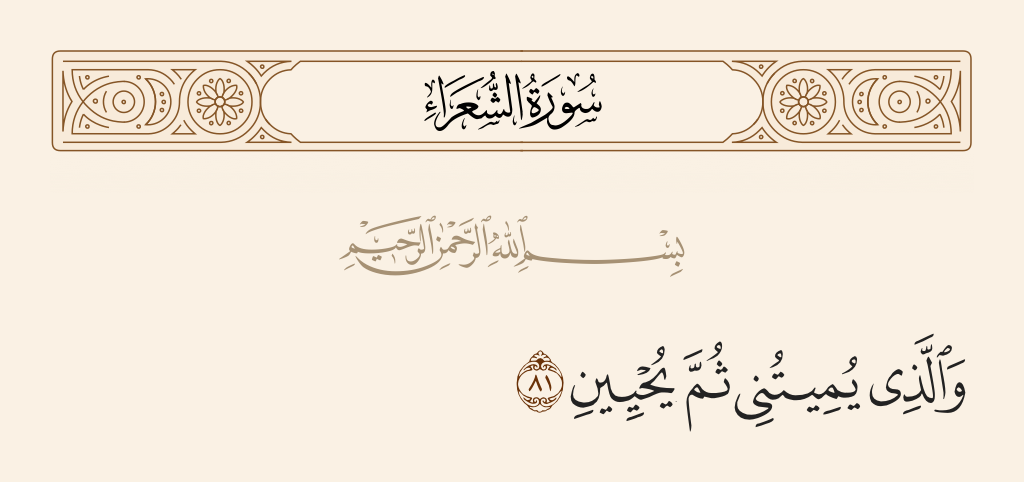 سُورَةُ الشُّعَرَاءِ
بِسْمِ ٱللَّهِ ٱلرَّحْمَٰنِ ٱلرَّحِيمِ
وَٱلَّذِى يُمِيتُنِى ثُمَّ يُحْيِينِ ٨١